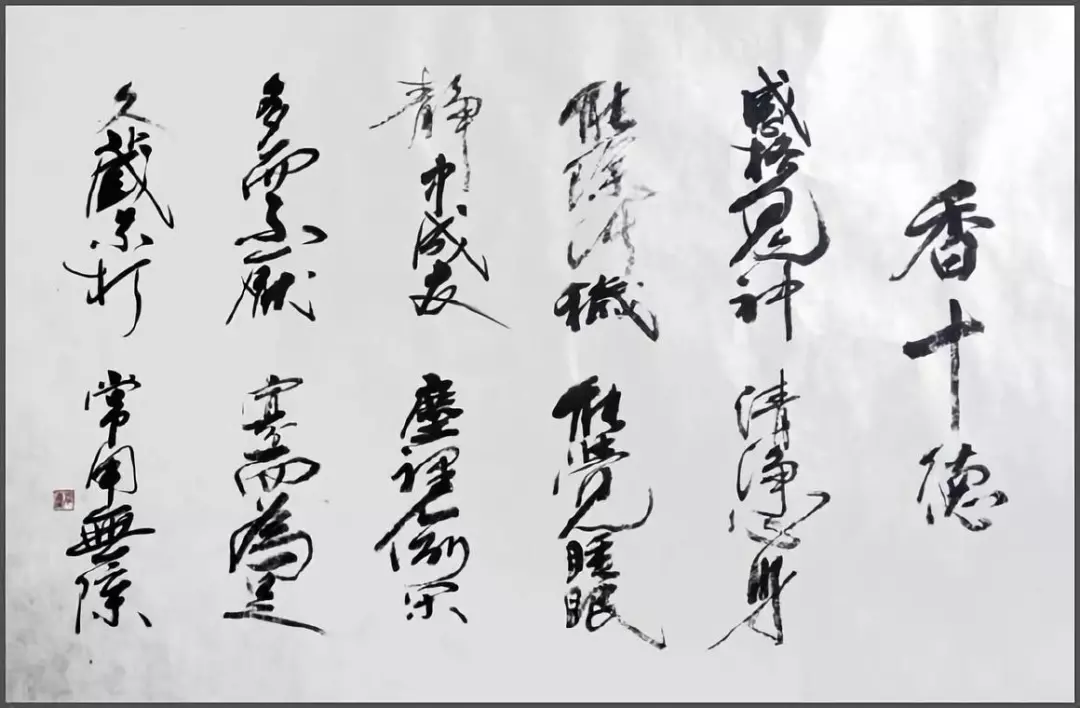 香十德
感格鬼神 清淨心身
能除污穢 能覺睡眠
靜中成友 塵裡偷閑
多而不厭 寡而為足
久藏不朽 常用無障